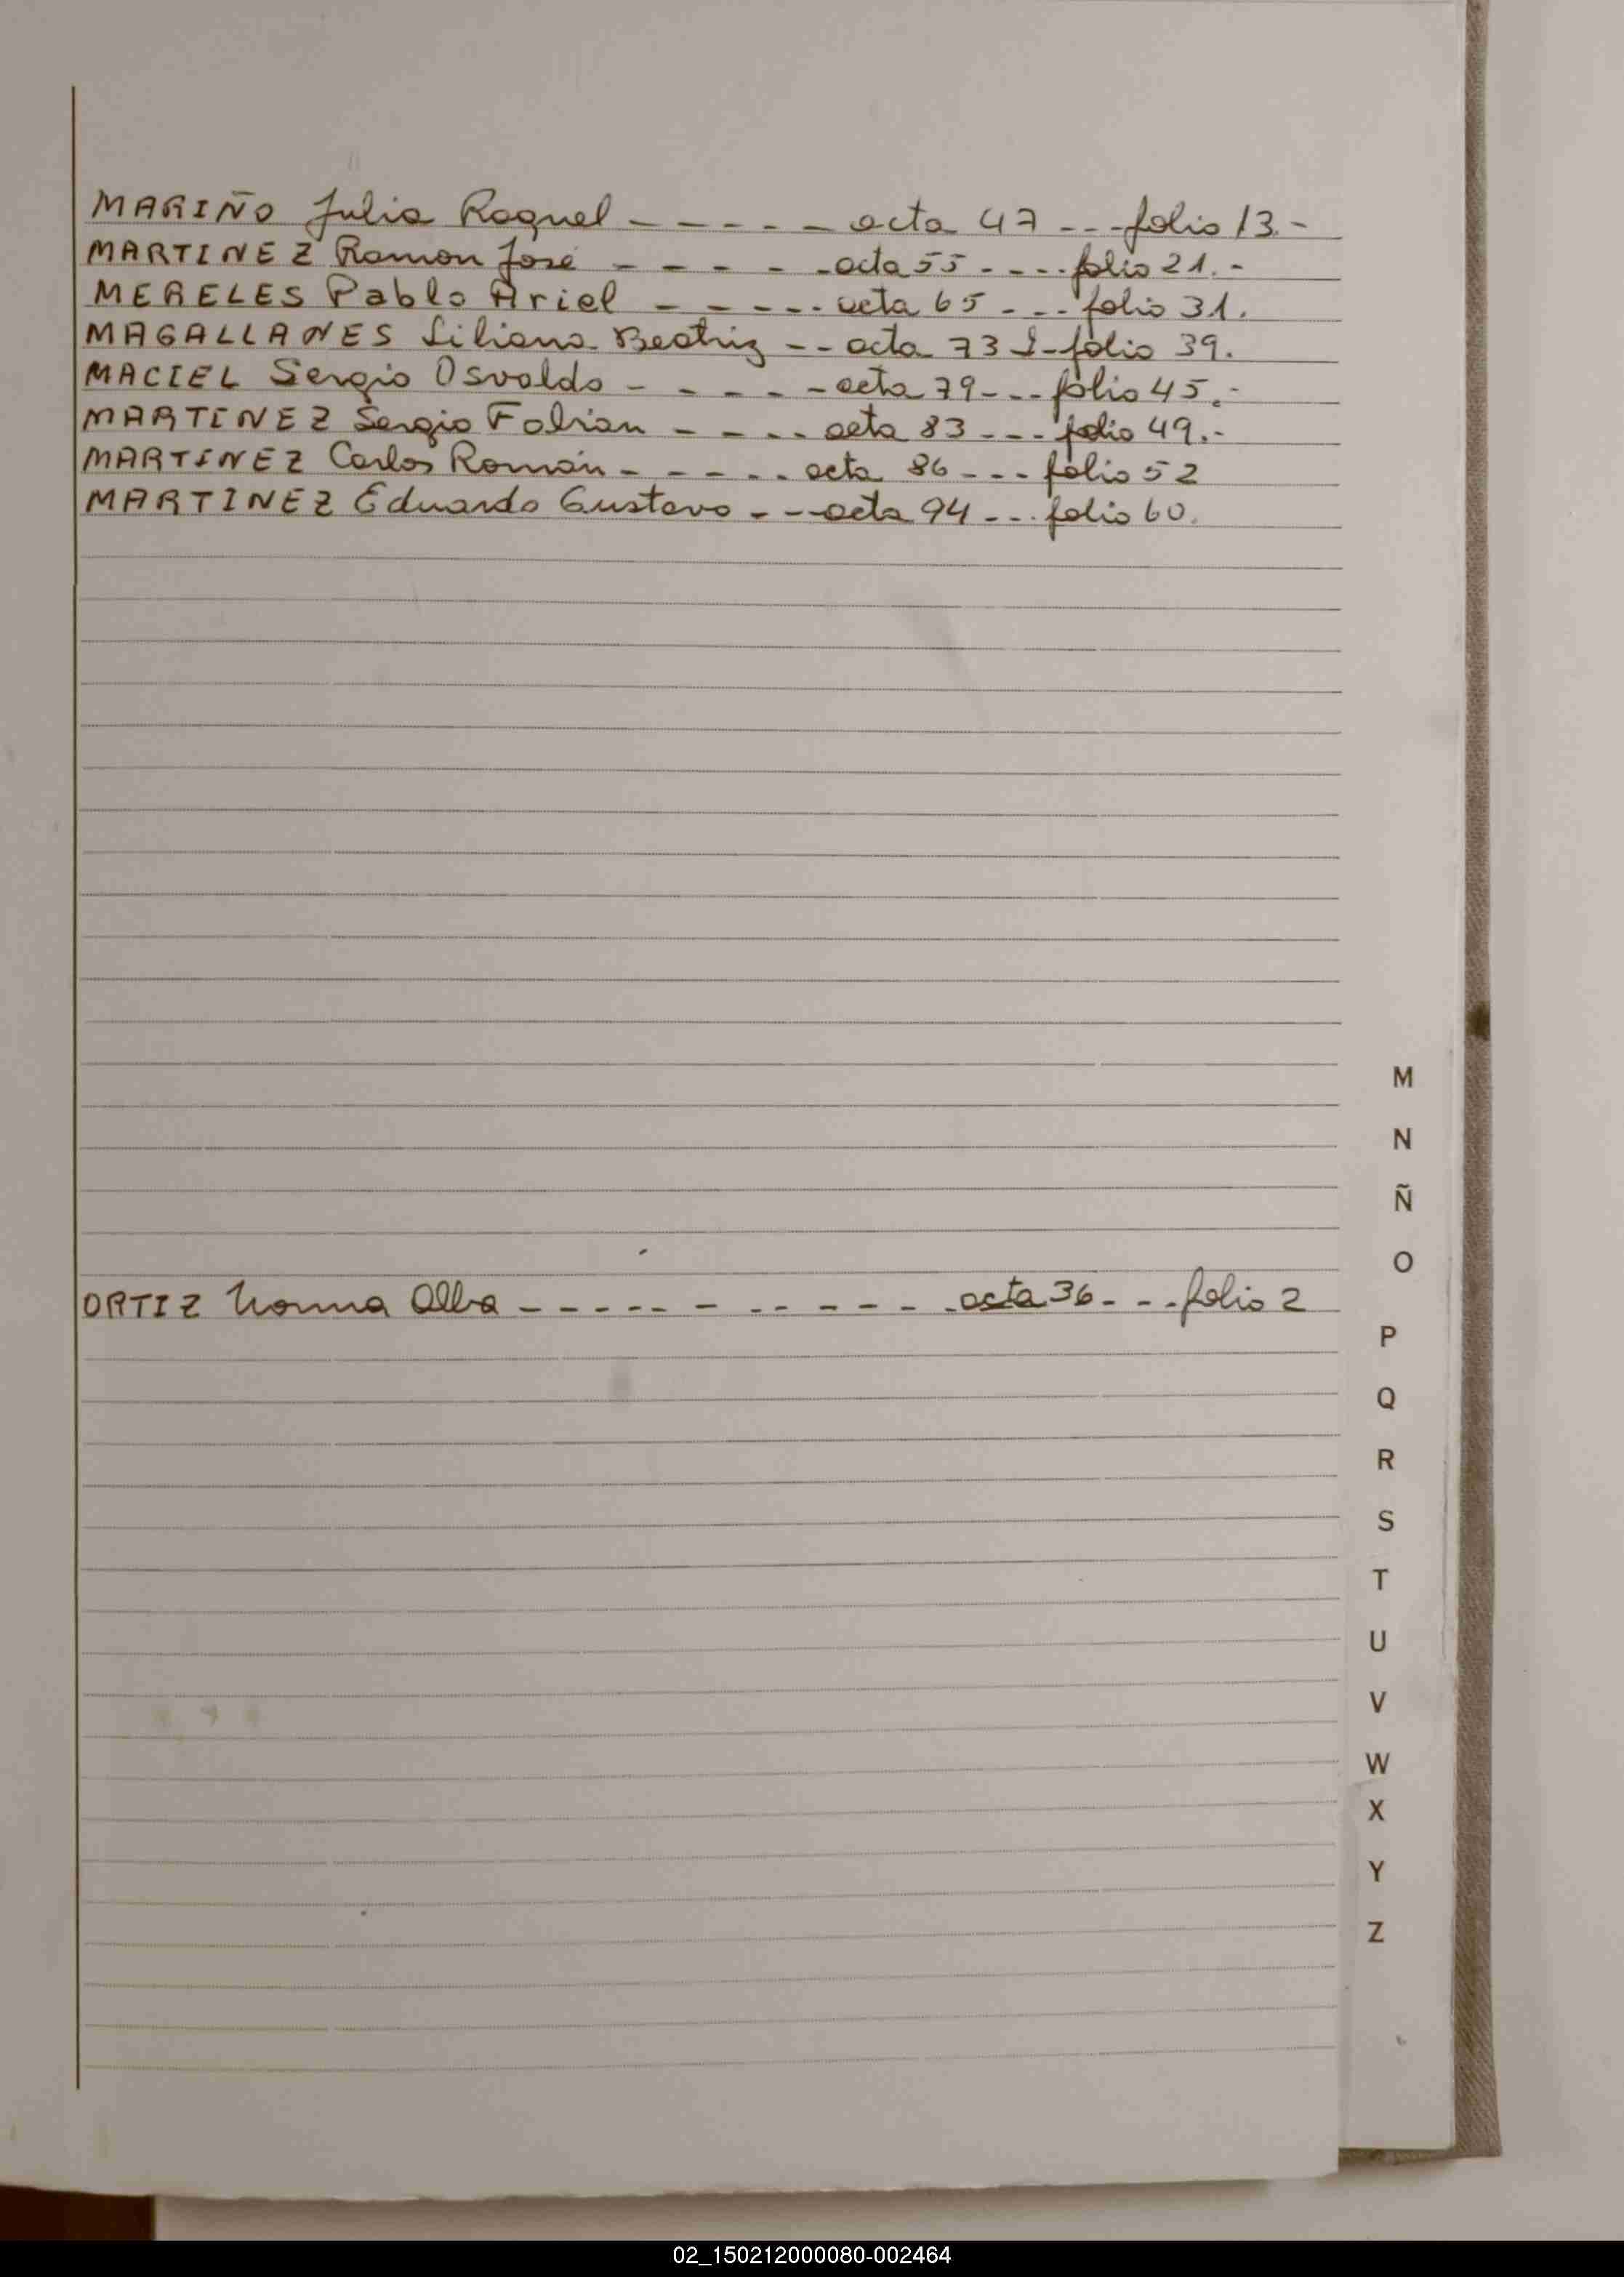 MARIÑO Julia Raquel - - - - - acta 47 - - - folio 13.-
MARTINEZ Ramon José - - - - - acta 55 - - - - folio 21.-
MERELES Pablo Ariel - - - - - acta 65 - - - - folio 31.
MAGALLANES Liliana Beatriz - - acta 73 - folio 39.
MACIEL Sergio Osvaldo - - - - - acta 79 - - - folio 45.-
MARTINEZ Sergio Fabian - - - - acta 83 - - - folio 49.-
MARTINEZ Carlos Román - - - - - acta 86 - - - folio 52
MARTINEZ Eduardo Gustavo - - - acta 94 - - - folio 60.
M
N
Ñ
O
ORTIZ Norma Alba - - - - - - - - - - - - acta 36 - - - folio 2
P
Q
R
S
T
U
V
W
X
Y
Z
02_150212000080-002464